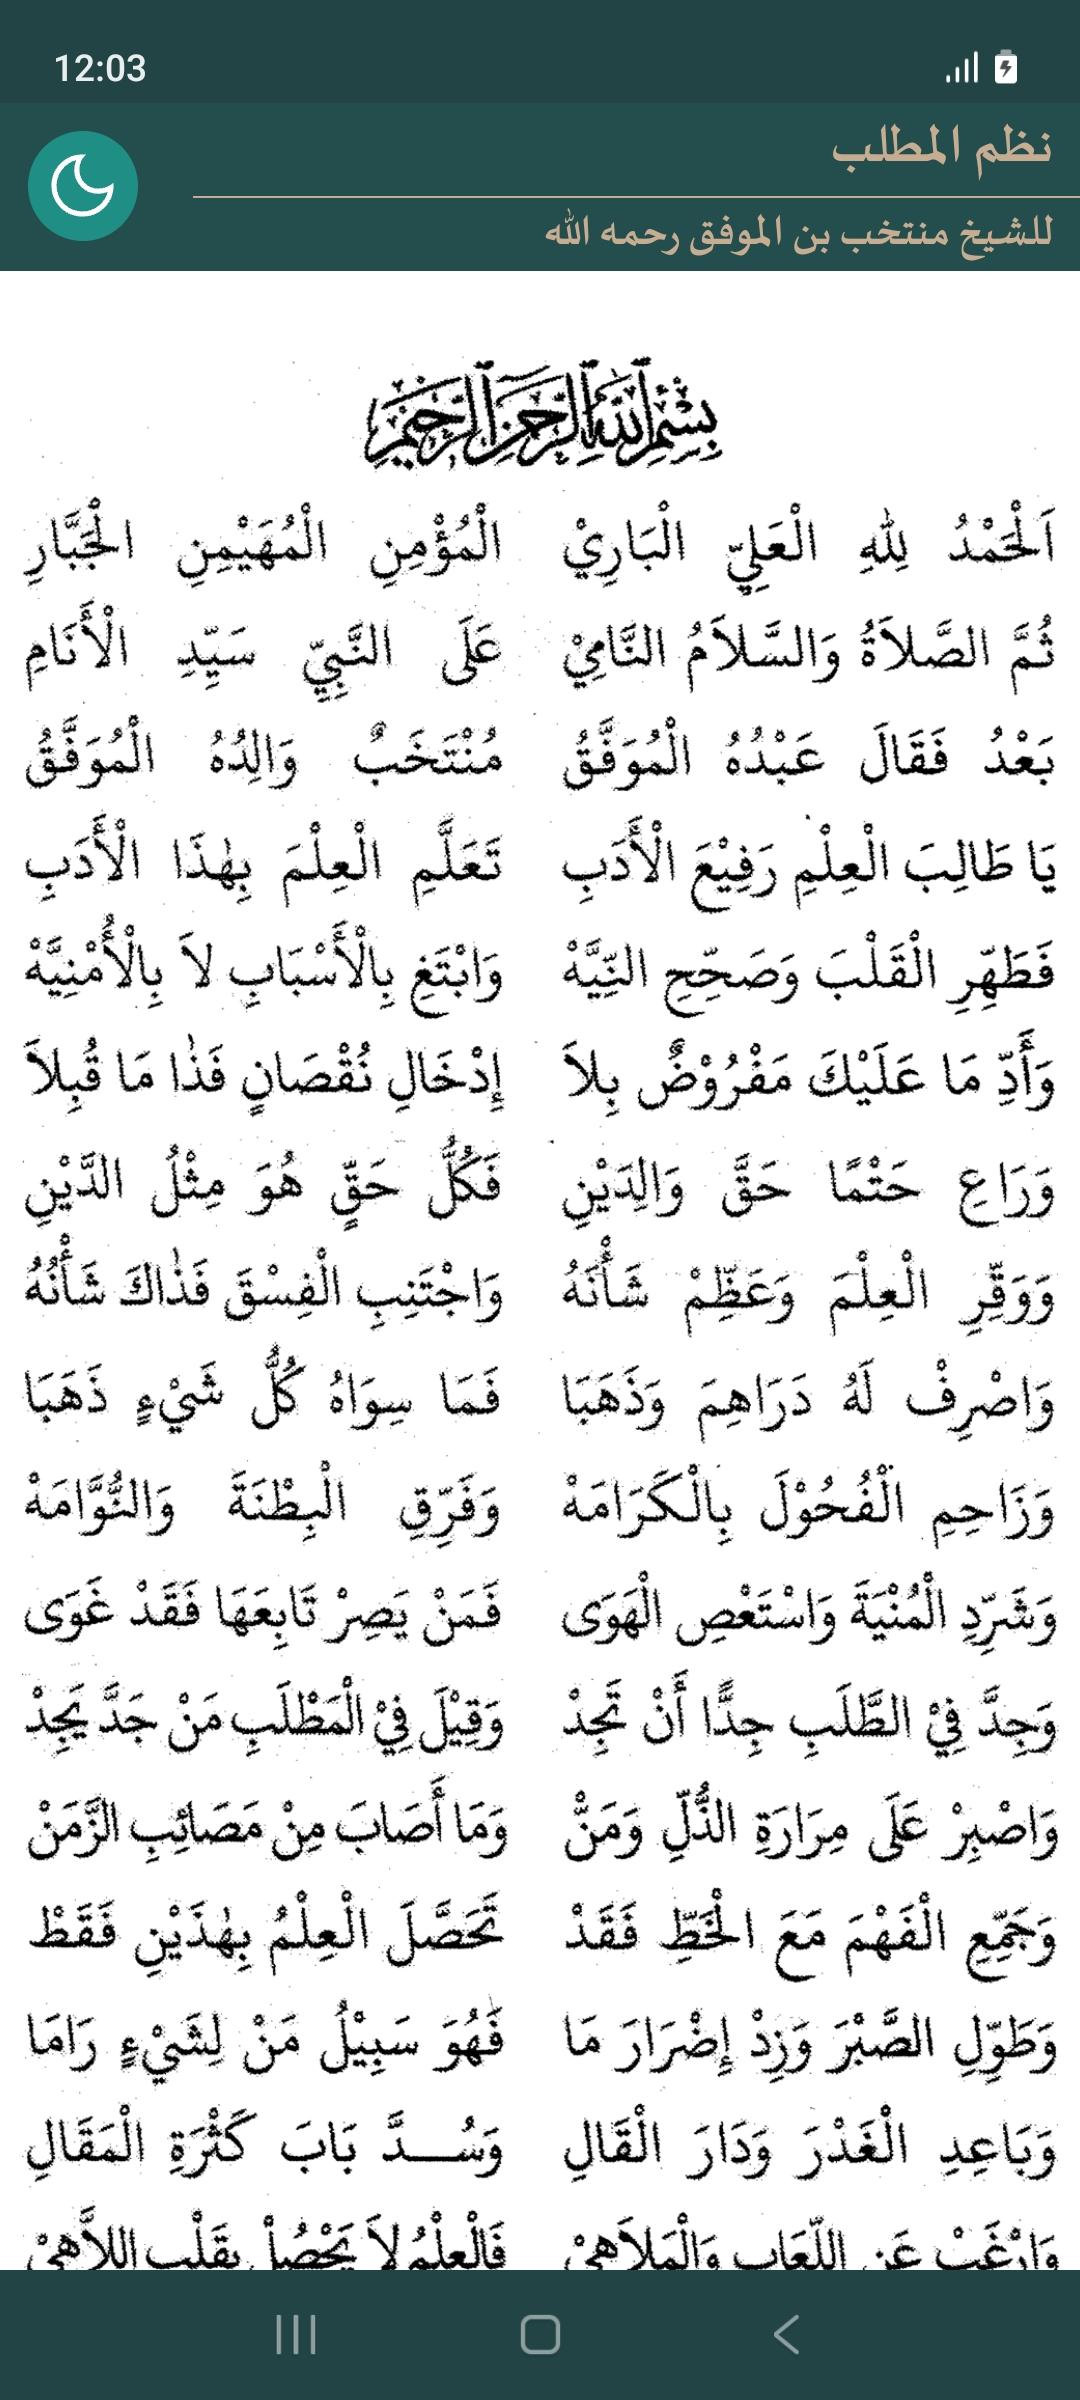 12:03
نظم المطلب
للشيخ منتخب بن الموفق رحمه الله
بِسْمِ اللَّهِ الرَّحْمَنِ الرَّحِيمِ
اَلْحَمْدُ لِلهِ الْعَلِيِّ الْبَارِيْ الْمُؤْمِنِ الْمُهَيْمِنِ الْجَبَّارِ
ثُمَّ الصَّلاَةُ وَالسَّلاَمُ النَّامِيْ عَلَى النَّبِيِّ سَيِّدِ الْأَنَامِ
بَعْدُ فَقَالَ عَبْدُهُ الْمُوَفَّقُ مُنْتَخَبٌ وَالِدُهُ الْمُوَفَّقُ
يَا طَالِبَ الْعِلْمِ رَفِيْعَ الْأَدَبِ تَعَلَّمِ الْعِلْمَ بِهٰذَا الْأَدَبِ
فَطَهِّرِ الْقَلْبَ وَصَحِّحِ النِّيَّهْ وَابْتَغِ بِالْأَسْبَابِ لاَ بِالْأُمْنِيَّهْ
وَأَدِّ مَا عَلَيْكَ مَفْرُوْضٌ بِلاَ إِدْخَالِ نُقْصَانٍ فَذٰا مَا قُبِلاَ
وَرَاعِ حَتْمًا حَقَّ وَالِدَيْنِ فَكُلُّ حَقٍّ هُوَ مِثْلُ الدَّيْنِ
وَوَقِّرِ الْعِلْمَ وَعَظِّمْ شَأْنَهُ وَاجْتَنِبِ الْفِسْقَ فَذٰاكَ شَأْنُهُ
وَاصْرِفْ لَهُ دَرَاهِمَ وَذَهَبَا فَمَا سِوَاهُ كُلُّ شَيْءٍ ذَهَبَا
وَزَاحِمِ الْفُحُوْلَ بِالْكَرَامَهْ وَفَرِّقِ الْبِطْنَةَ وَالنُّوَّامَهْ
وَشَرِّدِ الْمُنْيَةَ وَاسْتَعْصِ الْهَوَى فَمَنْ يَصِرْ تَابِعَهَا فَقَدْ غَوَى
وَجِدَّ فِيْ الطَّلَبِ جِدًّا أَنْ تَجِدْ وَقِيْلَ فِيْ الْمَطْلَبِ مَنْ جَدَّ يَجِدْ
وَاصْبِرْ عَلَى مِرَارَةِ الذُّلِّ وَمَنْ وَمَا أَصَابَ مِنْ مَصَائِبِ الزَّمَنْ
وَجَمِّعِ الْفَهْمَ مَعَ الْخَطِّ فَقَدْ تَحَصَّلَ الْعِلْمُ بِهٰذَيْنِ فَقَطْ
وَطَوِّلِ الصَّبْرَ وَزِدْ إِضْرَارَ مَا فَهُوَ سَبِيْلُ مَنْ لِشَيْءٍ رَامَا
وَبَاعِدِ الْغَدْرَ وَدَارَ الْقَالِ وَسُدَّ بَابَ كَثْرَةِ الْمَقَالِ
وَارْغَبْ عَنِ اللِّعَابِ وَالْمَلاَهِيْ فَالْعِلْمُ لاَ يَحْصُلْ بِقَلْبِ اللاَّهِيْ